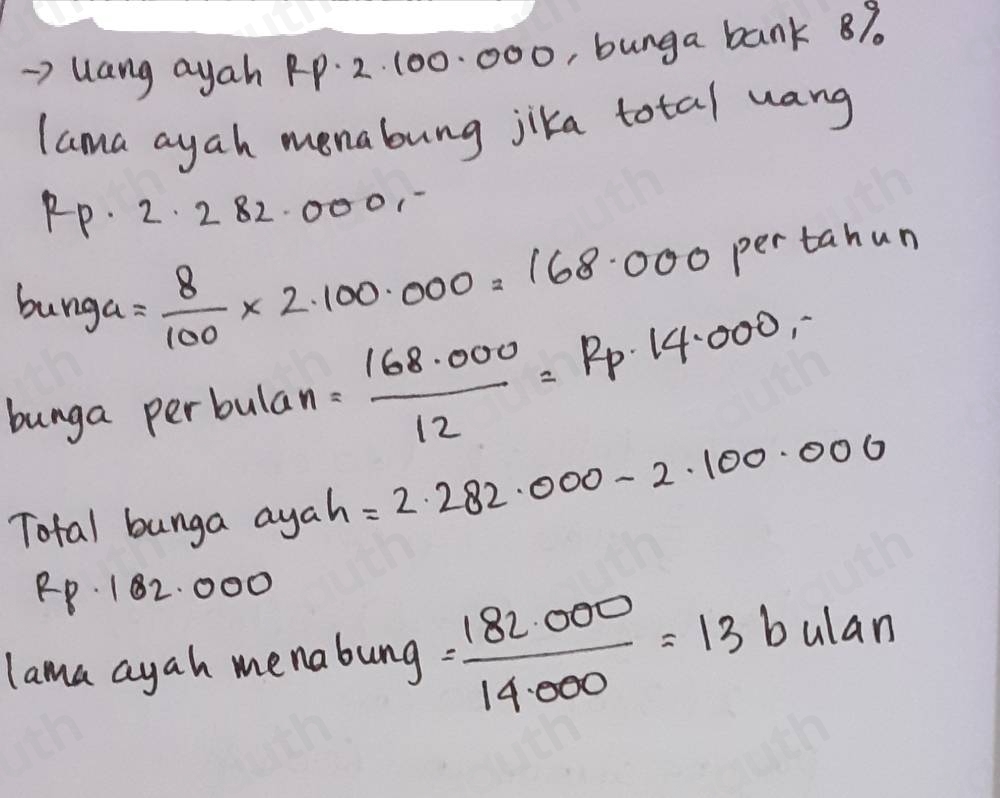 → Uang ayah Rp. 2.100.000, bunga bank 8%
lama ayah menabung jika total uang
Rp. 2.282.000,-
bunga = 8/100 × 2.100.000 = 168.000 per tahun
bunga perbulan = 168.000/12 = Rp. 14.000,-
Total bunga ayah = 2.282.000 - 2.100.000
Rp. 182.000
lama ayah menabung = 182.000/14.000 = 13 bulan